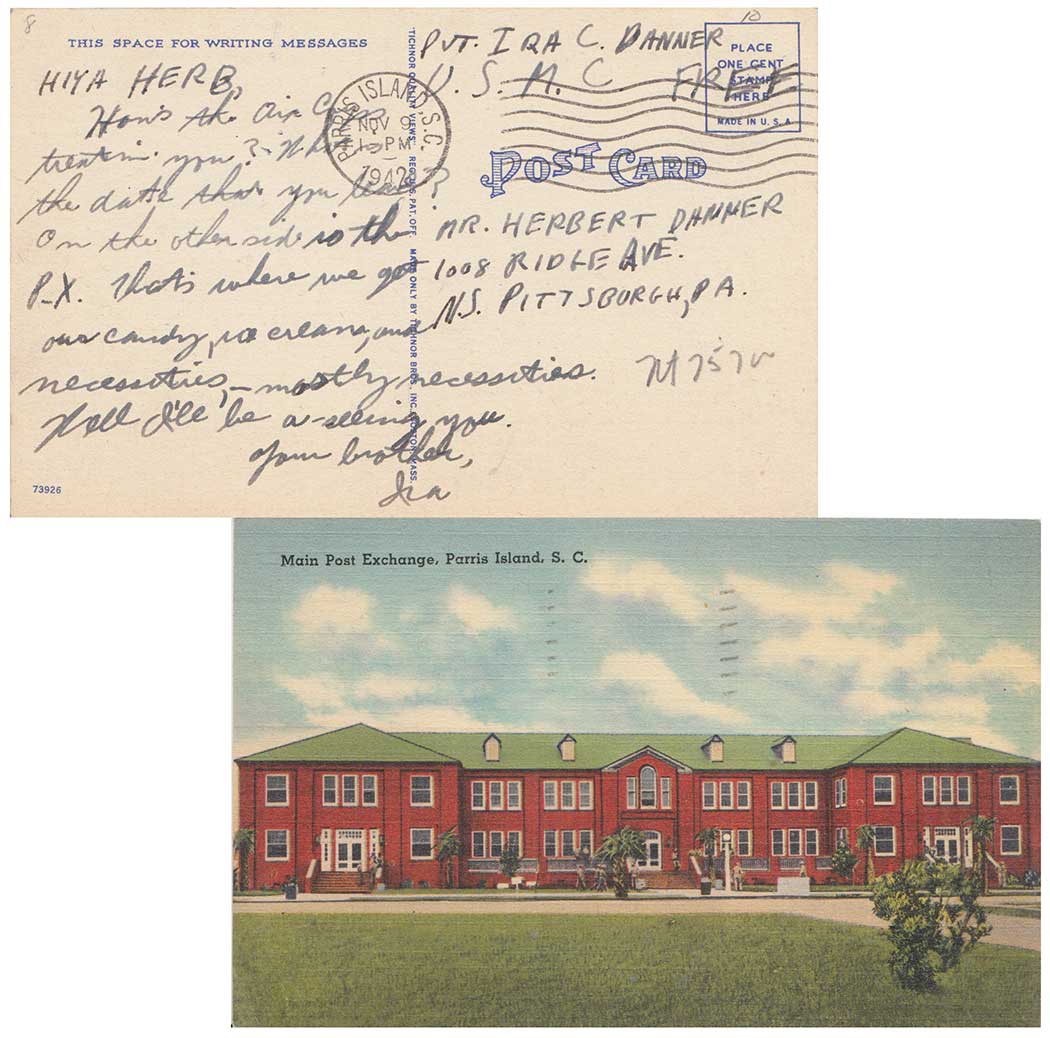 8
10
THIS SPACE FOR WRITING MESSAGES
HIYA HERB,
How's the Air Corps
treatin' you? What is
the date that you leave?
On the other side is the
P-X. That's where we get
our candy, ice cream, and
necessities, – mostly necessities.
Well I'll be a-seeing you.
Your brother,
Ira
73926
"TICHNOR QUALITY VIEWS" REG. U.S. PAT. OFF. MADE ONLY BY TICHNOR BROS., INC., BOSTON, MASS.
PARRIS ISLAND, S.C.
NOV 9
1 - PM
1942
PVT. IRA C. DANNER
U. S. M. C FREE
PLACE
ONE CENT
STAMP
HERE
MADE IN U. S. A
POST CARD
MR. HERBERT DANNER
1008 RIDGE AVE.
N.S. PITTSBURGH, PA.
Main Post Exchange, Parris Island, S. C.